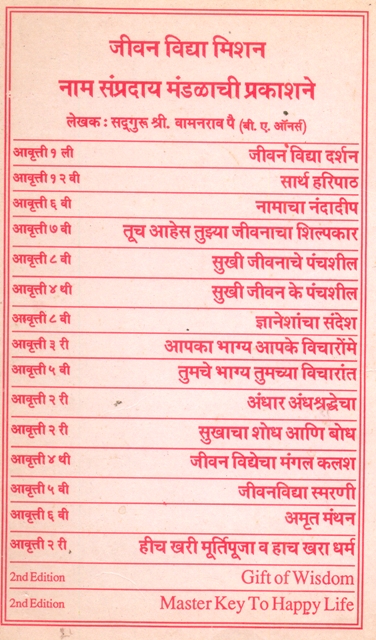 जीवन विद्या मिशन
नाम संप्रदाय मंडळाची प्रकाशने
लेखक : सद्‌गुरू श्री. वामनराव पै (बी. ए. ऑनर्स)
आवृत्ती १ ली जीवन विद्या दर्शन
आवृत्ती १२ वी सार्थ हरिपाठ
आवृत्ती ६ वी नामाचा नंदादीप
आवृत्ती ७ वी तूच आहेस तुझ्या जीवनाचा शिल्पकार
आवृत्ती ८ वी सुखी जीवनाचे पंचशील
आवृत्ती ४ थी सुखी जीवन के पंचशील
आवृत्ती ८ वी ज्ञानेशांचा संदेश
आवृत्ती ३ री आपका भाग्य आपके विचारोंमे
आवृत्ती ५ वी तुमचे भाग्य तुमच्या विचारांत
आवृत्ती २ री अंधार अंधश्रद्धेचा
आवृत्ती २ री सुखाचा शोध आणि बोध
आवृत्ती ४ थी जीवन विद्येचा मंगल कलश
आवृत्ती ५ वी जीवनविद्या स्मरणी
आवृत्ती ६ वी अमृत मंथन
आवृत्ती २ री हीच खरी मूर्तिपूजा व हाच खरा धर्म
2nd Edition Gift of Wisdom
2nd Edition Master Key To Happy Life